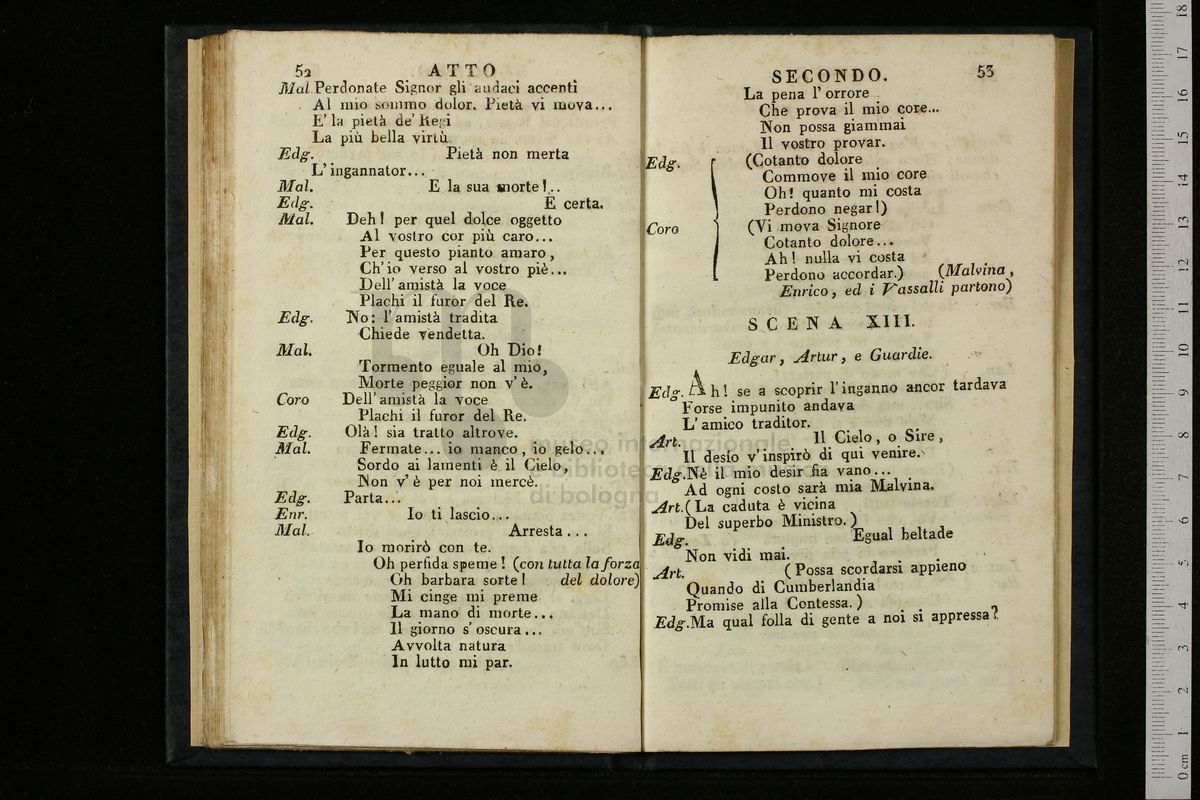 52 ATTO
Mal. Perdonate Signor gli audaci accenti
Al mio sommo dolor. Pietà vi mova...
E' la pietà de' Regi
La più bella virtù.
Edg. Pietà non merta
L' ingannator...
Mal. E la sua morte!..
Edg. E certa.
Mal. Deh! per quel dolce oggetto
Al vostro cor più caro...
Per questo pianto amaro,
Ch' io verso al vostro piè...
Dell' amistà la voce
Plachi il furor del Re.
Edg. No: l' amistà tradita
Chiede vendetta.
Mal. Oh Dio!
Tormento eguale al mio,
Morte peggior non v' è.
Coro Dell' amistà la voce
Plachi il furor del Re.
Edg. Olà! sia tratto altrove.
Mal. Fermate... io manco, io gelo...
Sordo ai lamenti è il Cielo,
Non v' è per noi mercè.
Edg. Parta...
Enr. Io ti lascio...
Mal. Arresta...
Io morirò con te.
Oh perfida speme! (con tutta la forza
Oh barbara sorte! del dolore)
Mi cinge mi preme
La mano di morte...
Il giorno s' oscura...
Avvolta natura
In lutto mi par.
SECONDO. 53
La pena l' orrore
Che prova il mio core...
Non possa giammai
Il vostro provar.
Edg. (Cotanto dolore
Commove il mio core
Oh! quanto mi costa
Perdono negar!)
Coro (Vi mova Signore
Cotanto dolore...
Ah! nulla vi costa
Perdono accordar.) (Malvina,
Enrico, ed i Vassalli partono)
SCENA XIII.
Edgar, Artur, e Guardie.
Edg. Ah! se a scoprir l' inganno ancor tardava
Forse impunito andava
L' amico traditor.
Art. Il Cielo, o Sire,
Il desío v' inspirò di qui venire.
Edg. Nè il mio desir fia vano...
Ad ogni costo sarà mia Malvina.
Art. (La caduta è vicina
Del superbo Ministro.)
Edg. Egual beltade
Non vidi mai.
Art. (Possa scordarsi appieno
Quando di Cumberlandia
Promise alla Contessa.)
Edg. Ma qual folla di gente a noi si appressa?
museo internazionale
e biblioteca della musica
di bologna
0 cm 1 2 3 4 5 6 7 8 9 10 11 12 13 14 15 16 17 18